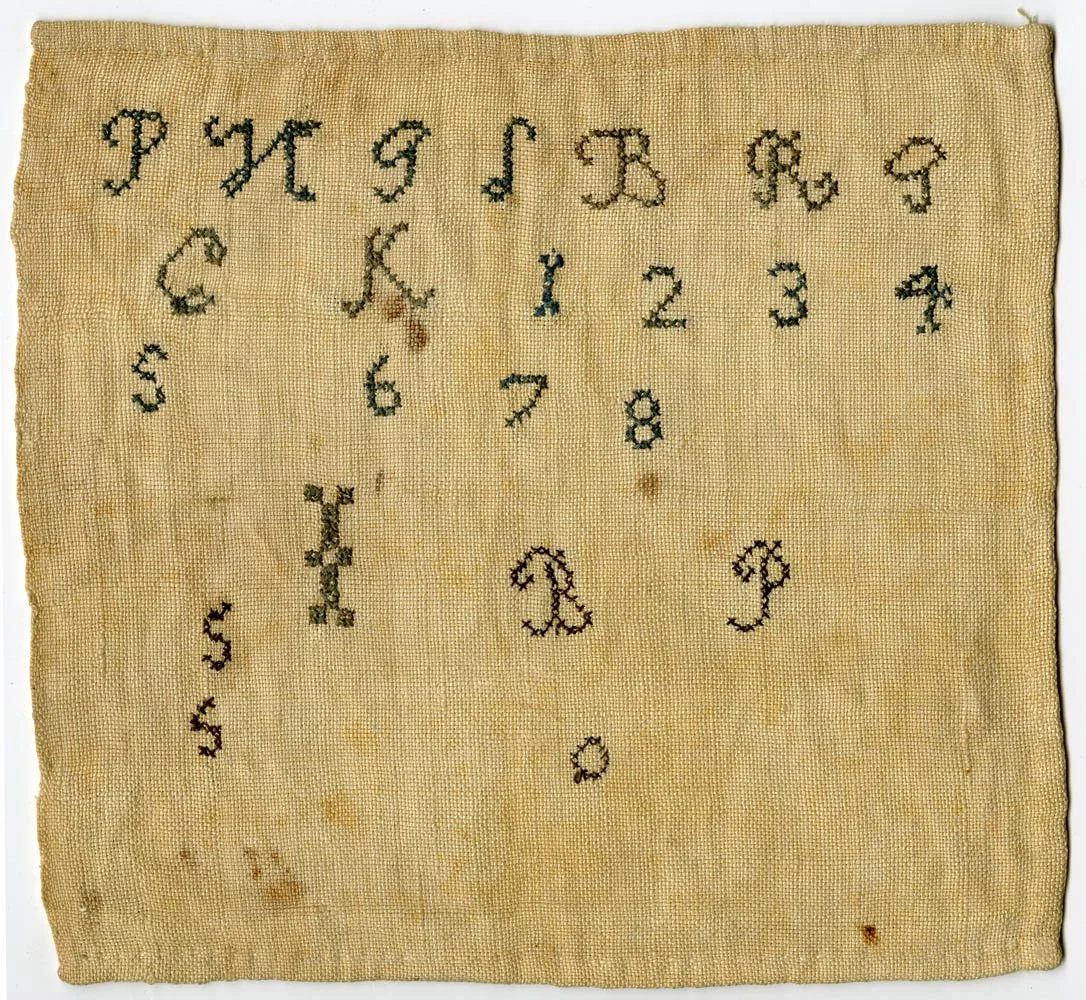 P H G J B R G
C K 1 2 3 4
5 6 7 8
I B P
S
S O